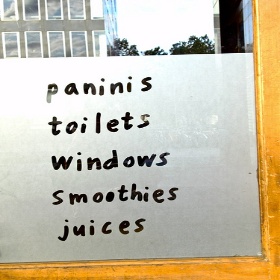 paninis
toilets
windows
smoothies
juices